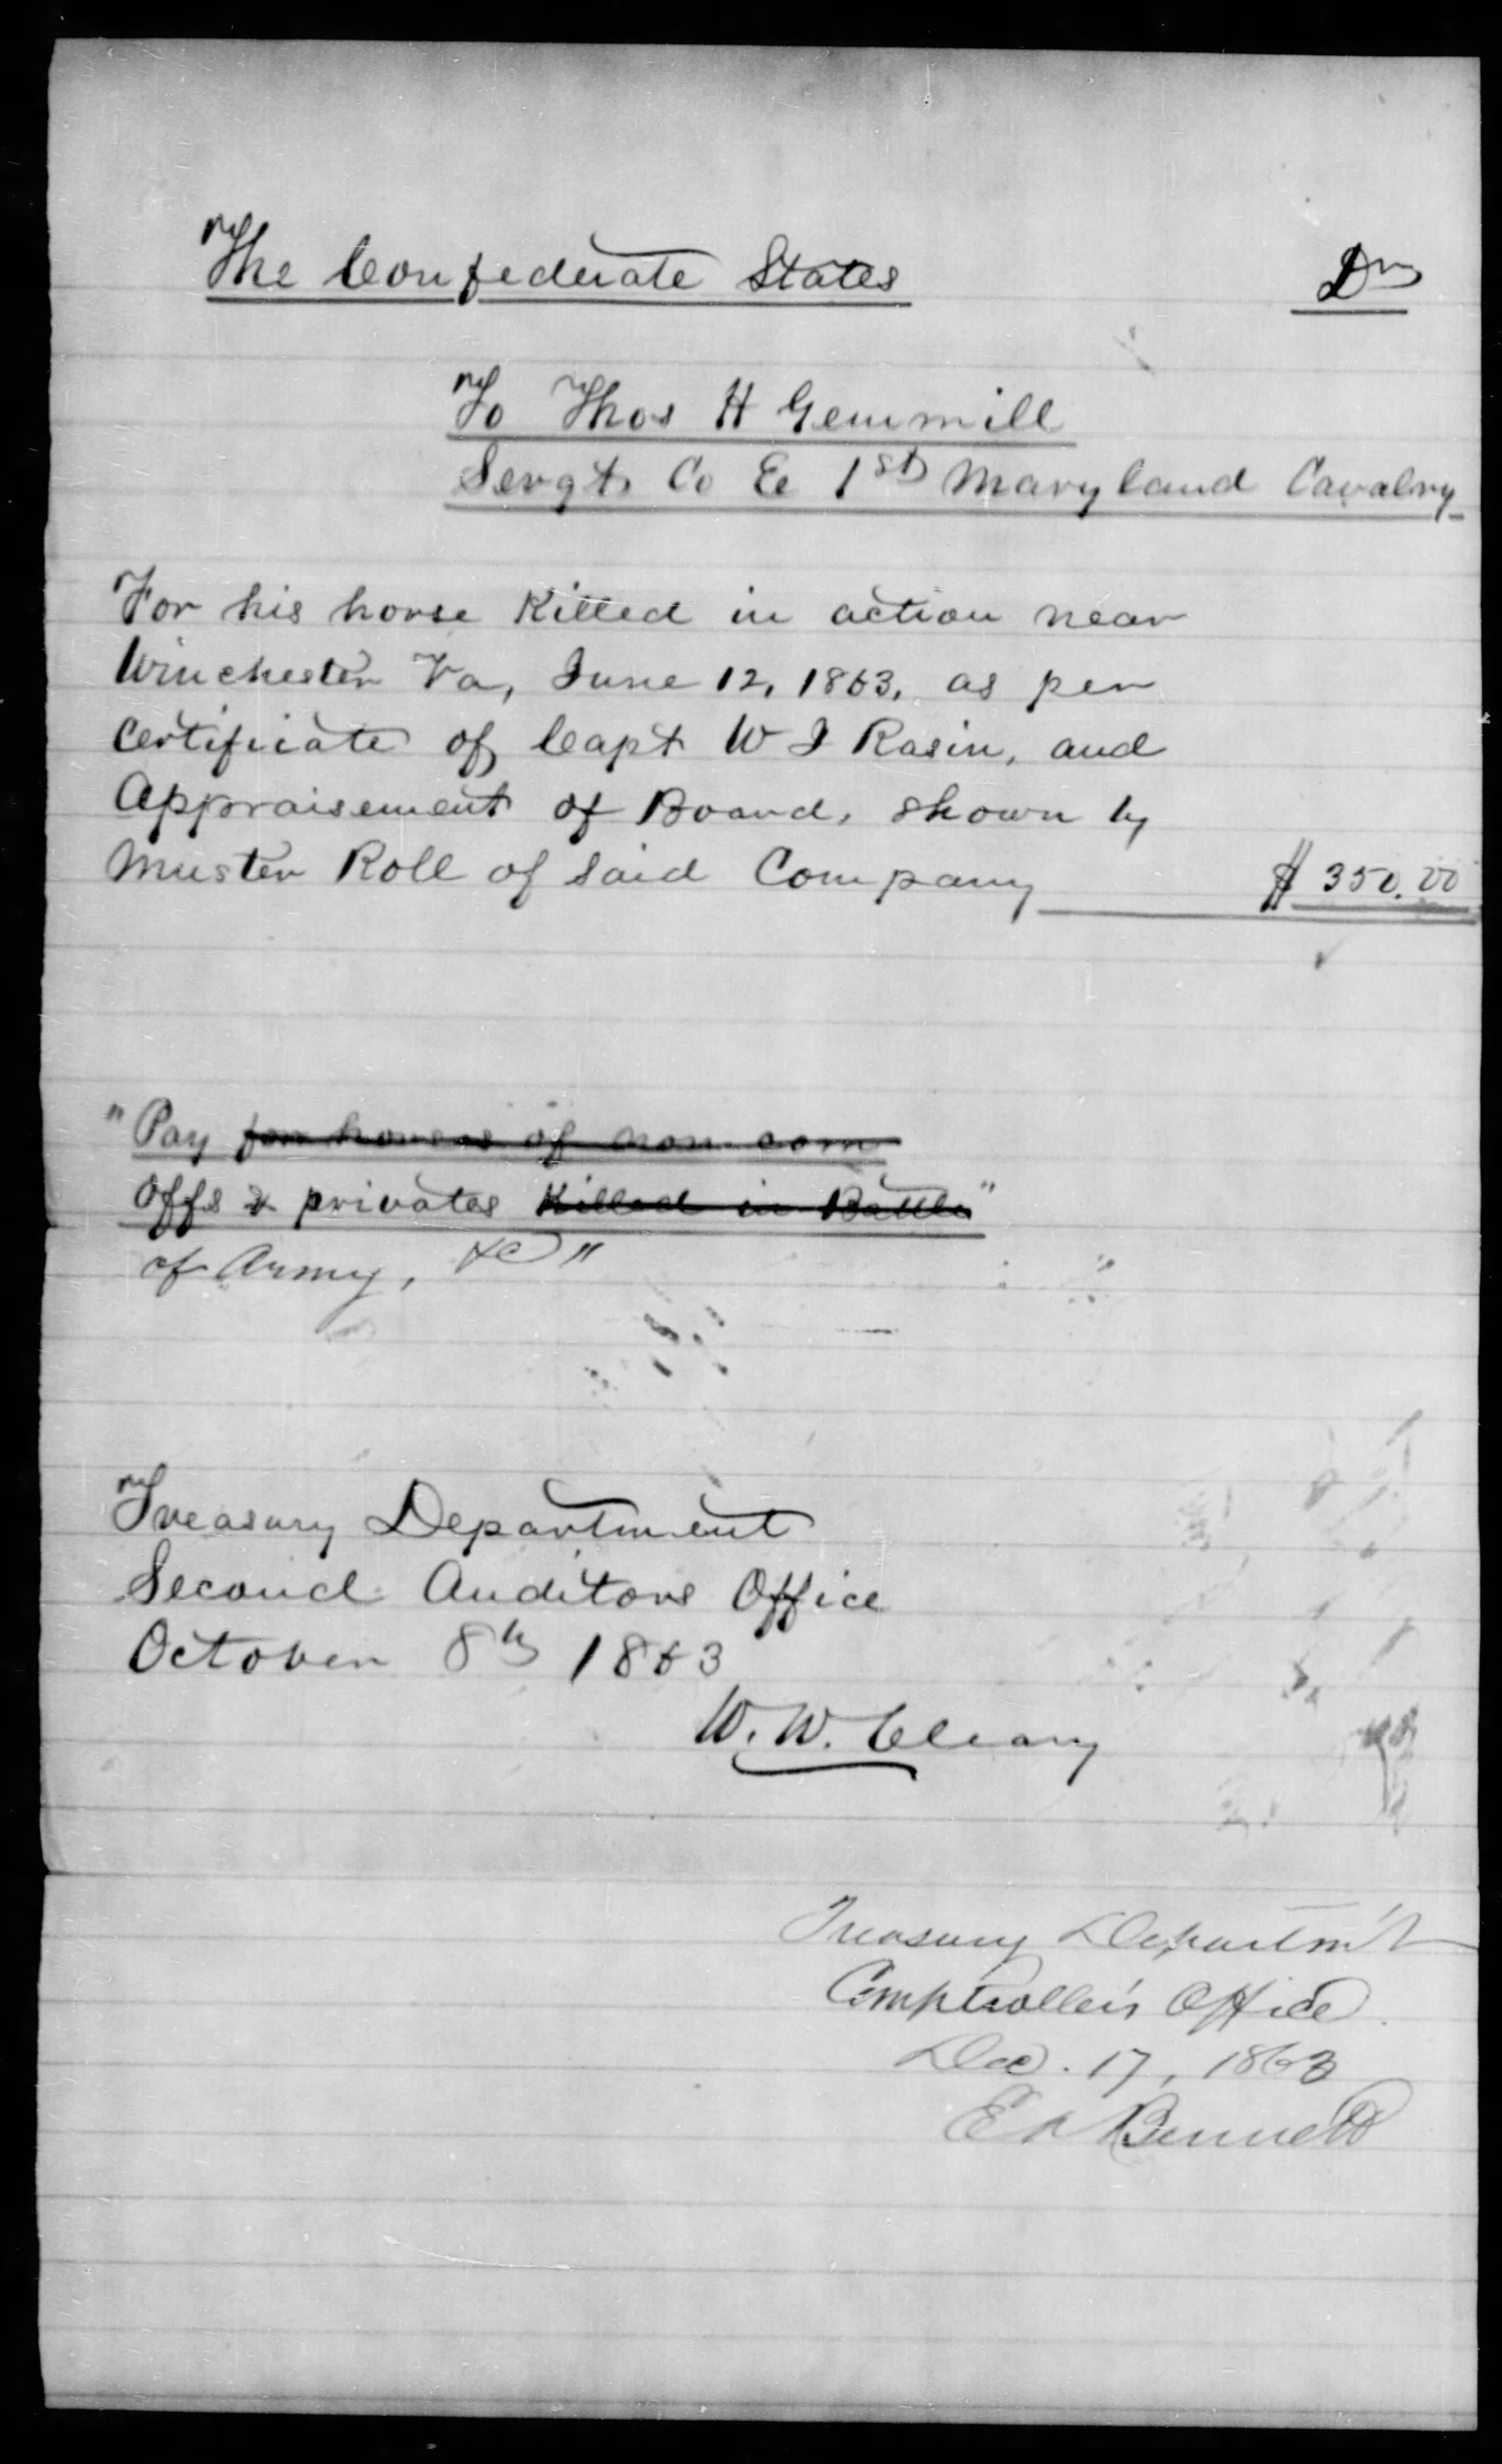 The Confederate States Dr
To Thos H Gemmill
Sergt Co E 1st Maryland Cavalry
For his horse Killed in action near
Winchester Va, June 12, 1863, as per
Certificate of Capt W I Rasin, and
Appraisement of Board, shown by
Muster Roll of said Company $ 350.00
"Pay for horses of non com
Offs & privates Killed in Battle"
of Army, &c"
Treasury Department
Second Auditors Office
October 8th 1863
W. W. Cleary
Treasury Departm't
Comptroller's Office
Dec. 17, 1863
Bennett